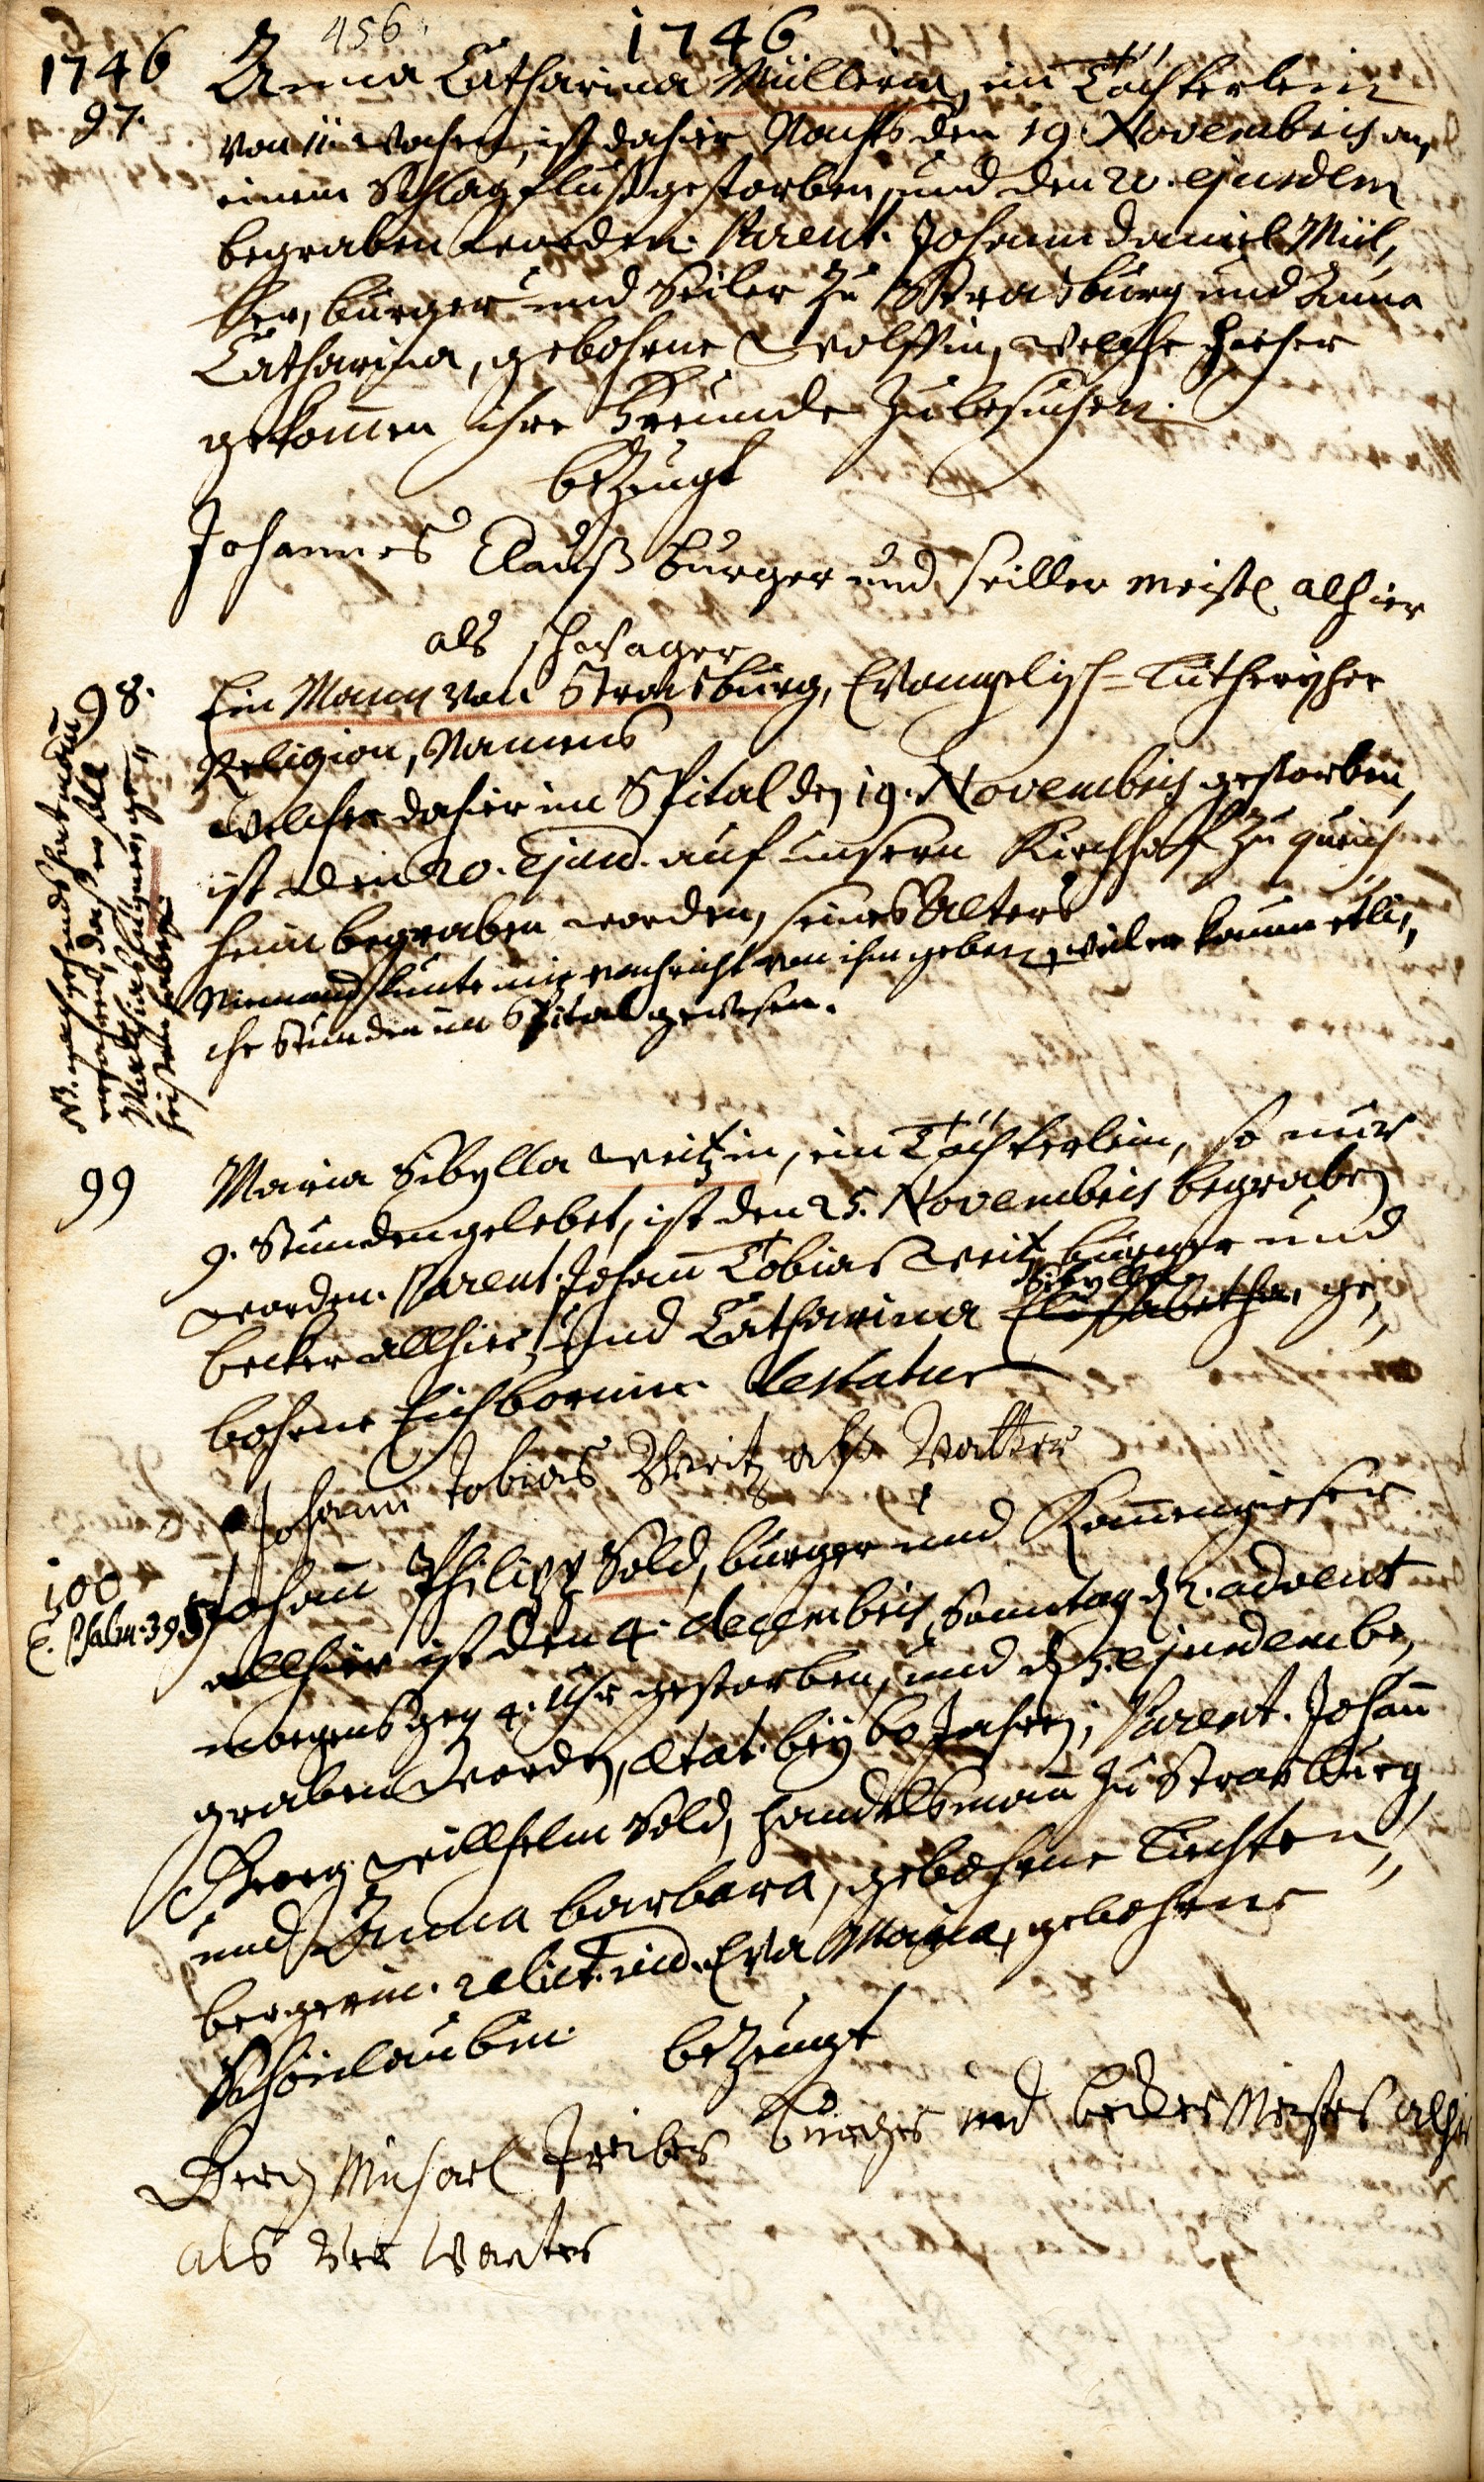 456.
1746
1746
97.
Anna Catharina Müllerin, ein Töchterlein
von 11. wochen, ist dahier Nachts den 19. Novembris an,
einem Schlagfluß gestorben, und den 20. ejusdem
begraben worden. Parent. Johann Daniel Mül,
ler, burger und Seiler zu Strasburg und Anna
Catharina, gebohrne Wolffin, welche hieher
gekom̄en ihre Freunde zu besuchen.
bezeugt
Johannes Clauß burger und seiller meister alhier
als schwager
98.
Ein Mann von Strasburg, Evangelisch-Lutherischer
Religion, Namens
welcher dahier im Spital den 19. Novembris gestorben,
ist den 20. Ejusd. auf unsern Kirchhof zu
heim begraben worden, seines Alters
Niemand kunte mir nachricht von ihm geben, weil er kaum etli,
che Stunden im Spital gewesen.
NB. nachgehends hat man
erfahren, daß er soll
Matthias ge,
heisen haben.
99
Maria Sibylla Weitzin, ein Töchterlein, so nur
9. Stunden gelebet, ist den 25. Novembris begraben
worden. Parent. Johan̄ Tobias Weitz burger und
becker allhier, und Catharina Sibylla Elisabetha, ge,
bohrne Eichbornin. testatur
Johann Tobias Weitz als Vatter
100
C. Psalm. 39.
Johan̄ Philipp Sold, burger und Kan̄engieser
allhier ist den 4. decembris, Sonntag d. 2. advent
morgens geg 4. Uhr gestorben, und d. 5. ejusdem be,
graben worden, ætat. bey 60 Jahren; Parent. Johan̄
Georg Willhelm Sold, handelsman̄ zu Strasburg
und Anna barbara, gebohrne Liechten,
bergerin. relict. vid. Eva Maria, gebohrne
Schönlaubin. bezeugt
Georg Michael burger und becker Meister alhier
als